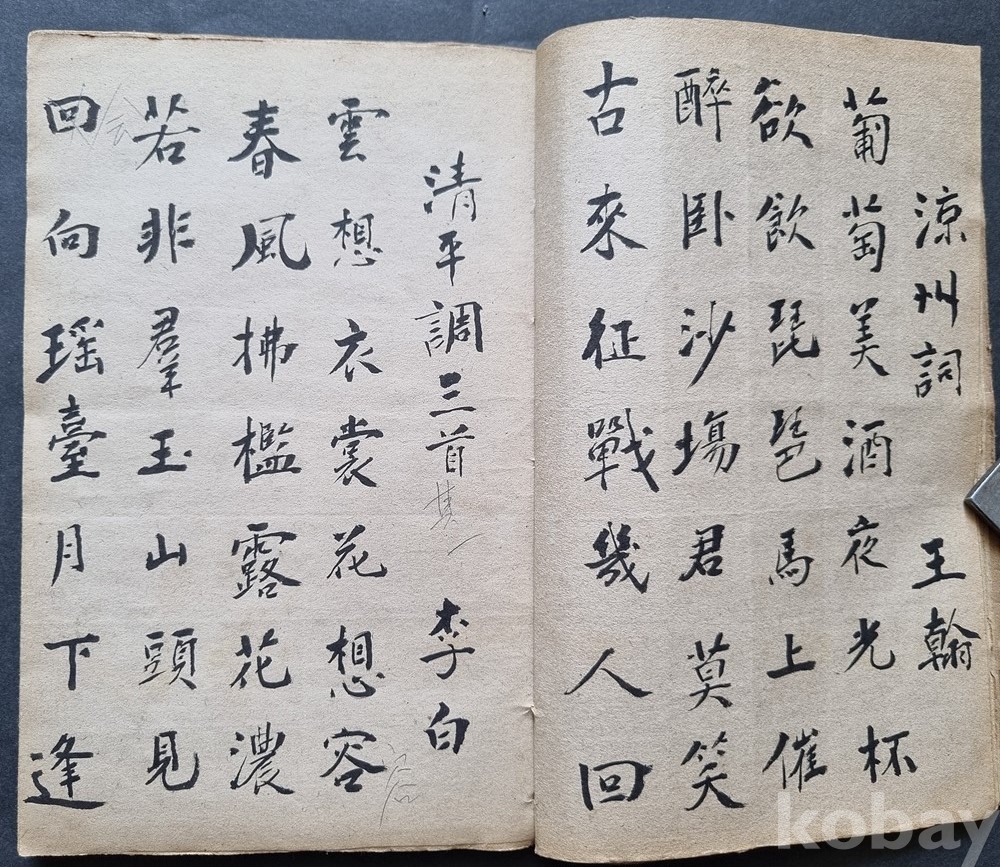 涼州詞 王翰
葡萄美酒夜光杯
欲飲琵琶馬上催
醉臥沙場君莫笑
古來征戰幾人回
清平調三首其一 李白
雲想衣裳花想容
春風拂檻露花濃
若非羣玉山頭見
会
回向瑤臺月下逢
kobay